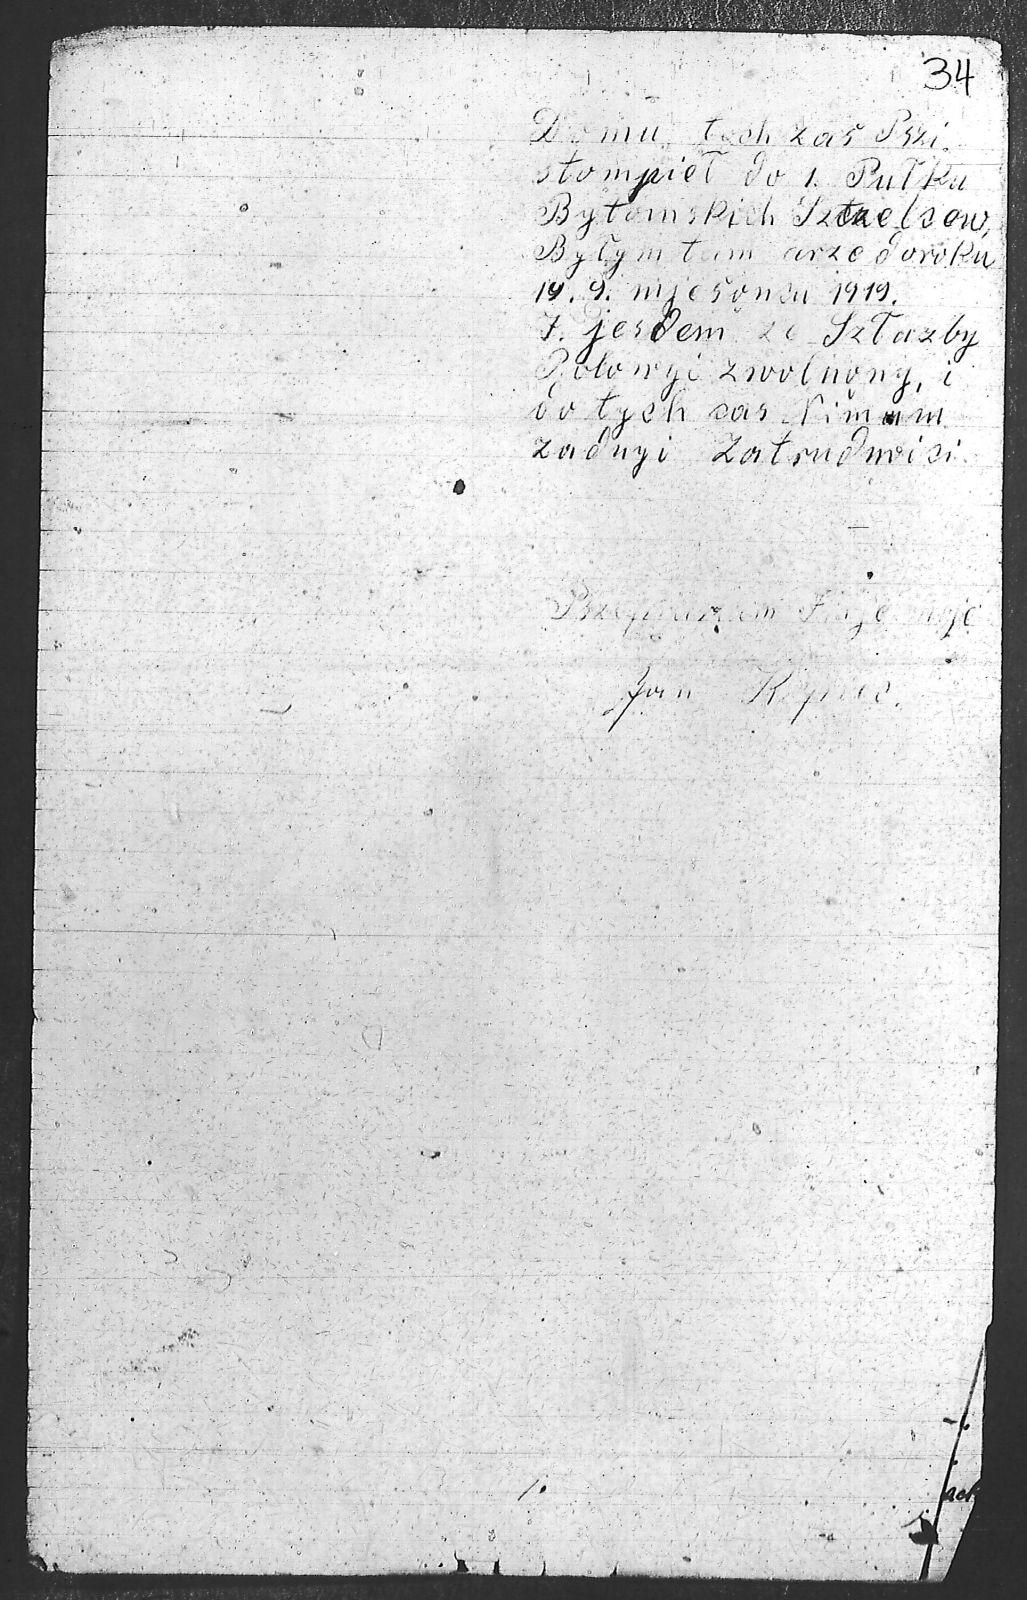 34
Domu, tych zas Pszi.
stompieł do 1. Pułku
Bytomskich Sztzelcow,
Byłym tam arze doroku
19. 9. mjesoncu 1919.
7. jesdem ze Szłazby
Polowyi zwolnony, i
do tych cas Nimam
zadnyi Zatrudnici.
moje
Jan